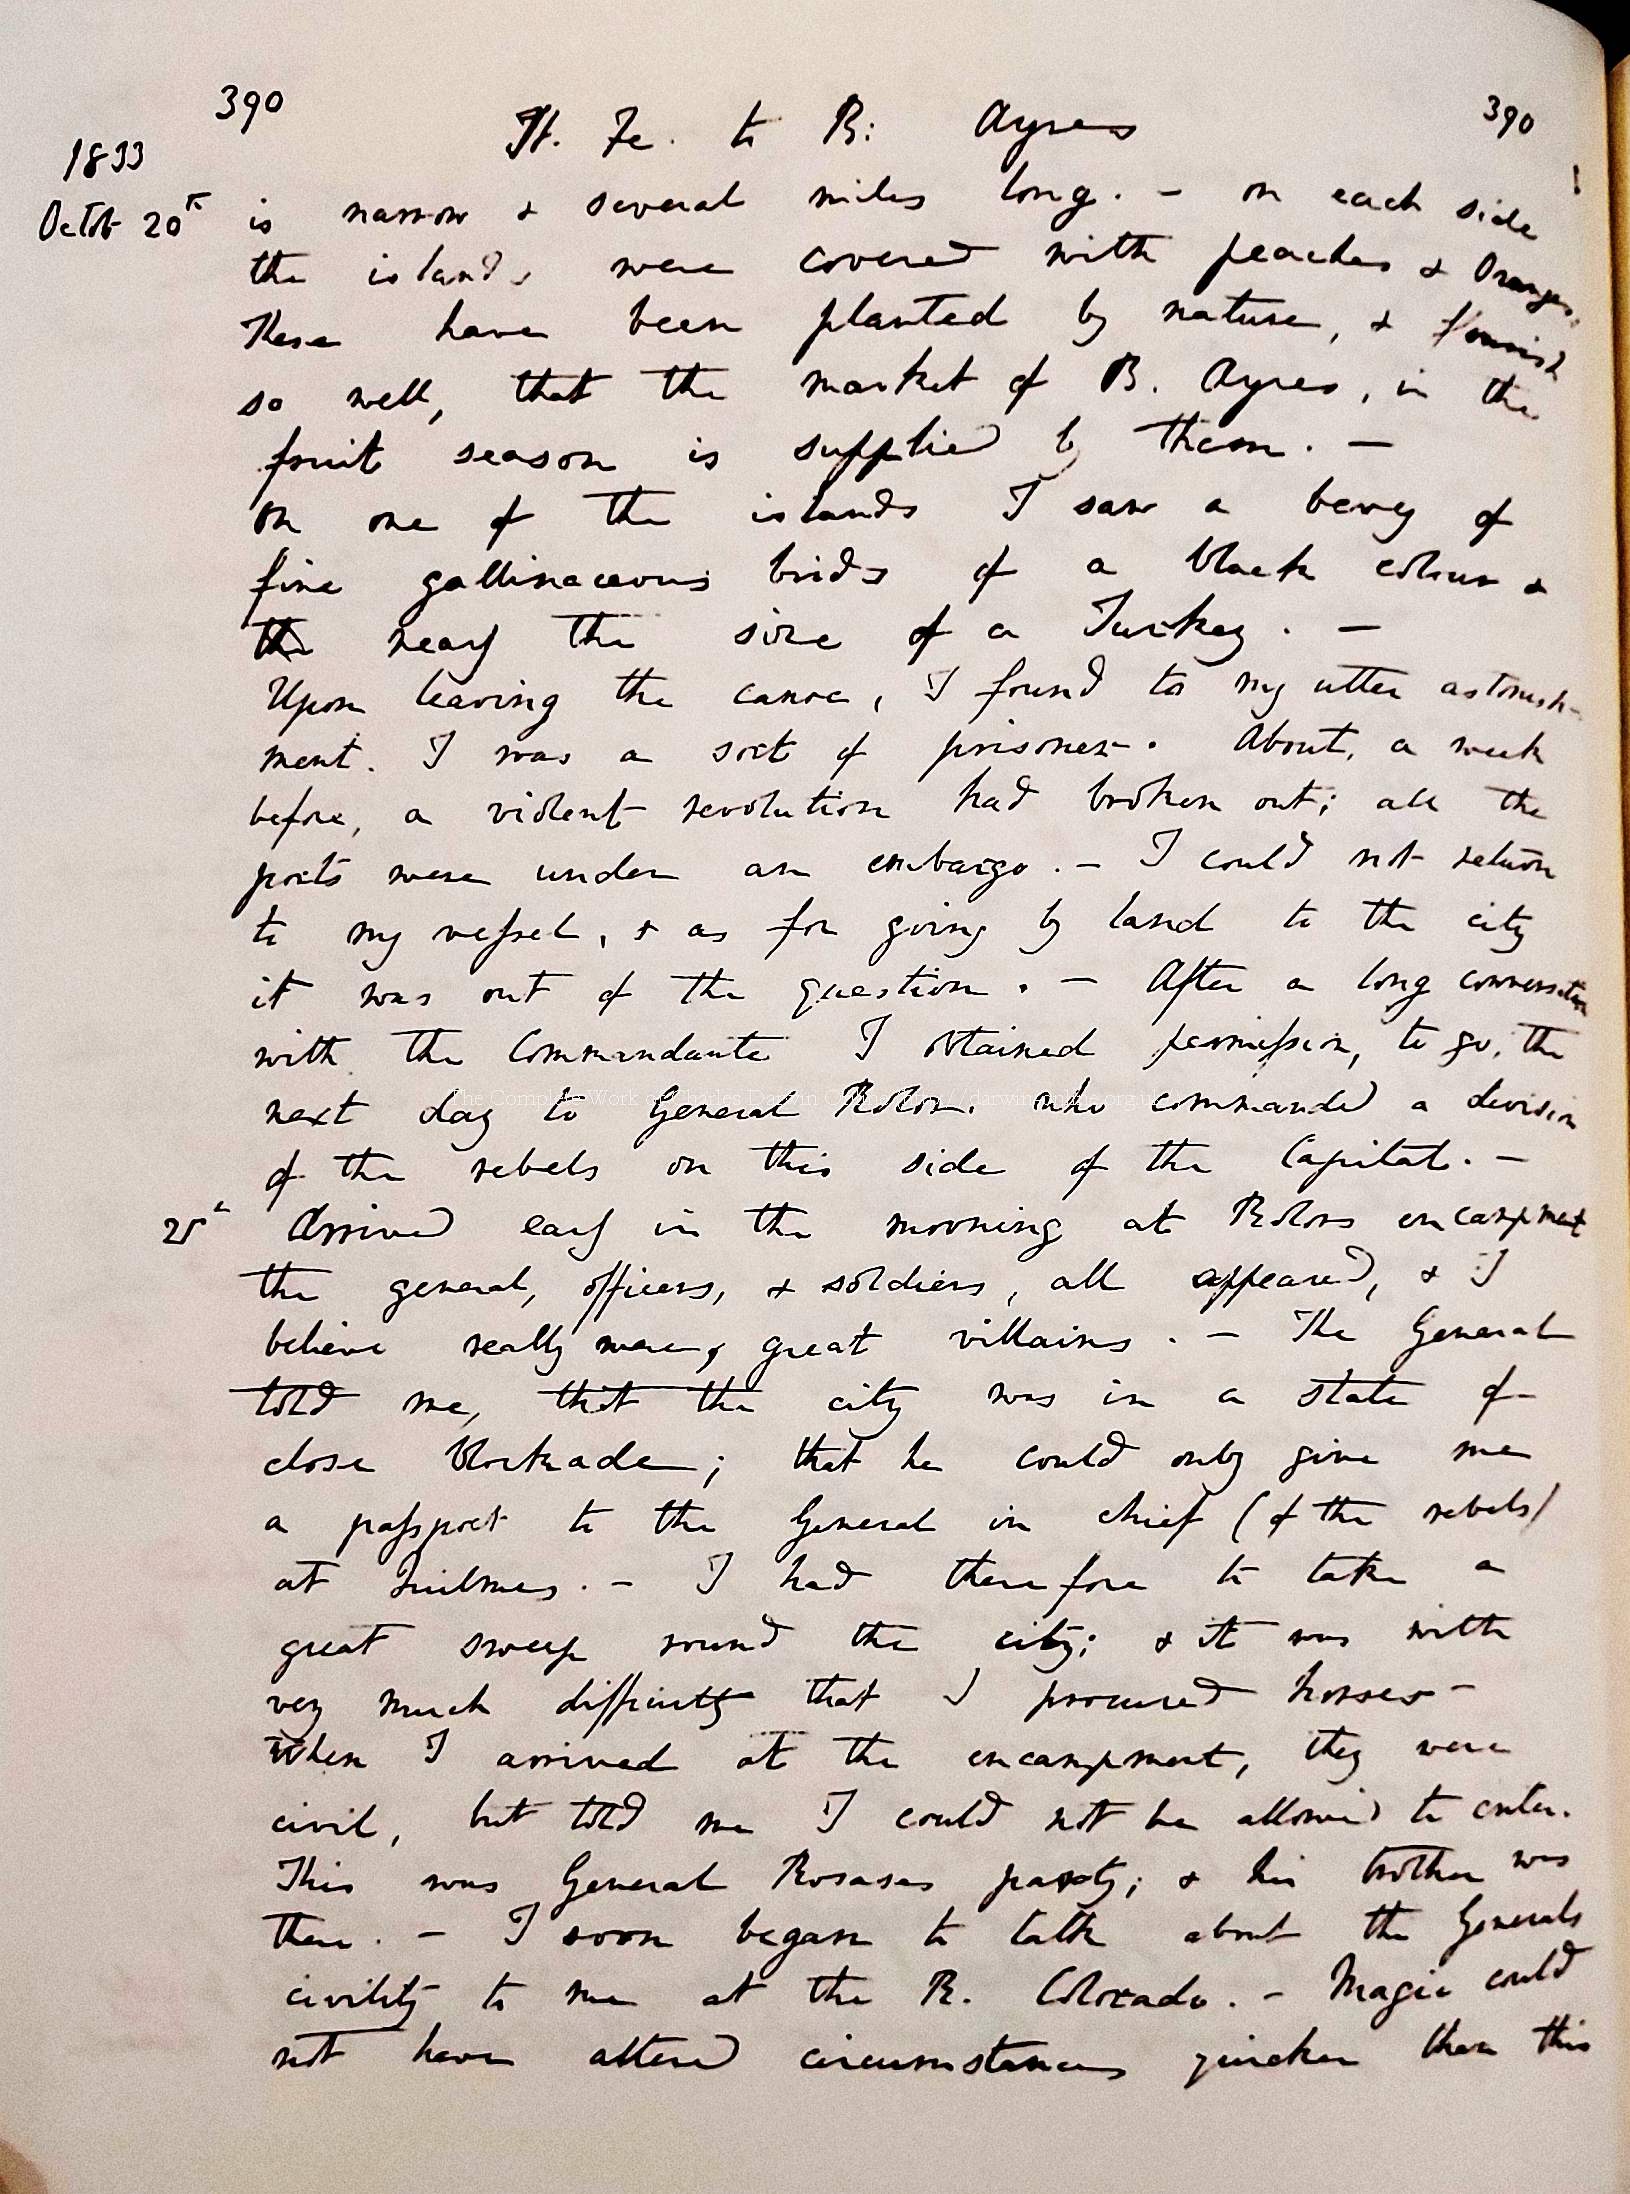 390 St. Fe. to B: Ayres 390
1833
Octob 20th is narrow & several miles long. — on each side
the islands were covered with peaches & Oranges.
These have been planted by nature, & flourish
so well, that the market of B. Ayres, in the
fruit season is supplied by them. —
On one of the islands I saw a bevy of
fine gallinaceous birds of a black colour &
the nearly the size of a Turkey. —
Upon leaving the canoe, I found to my utter astonish-
ment. I was a sort of prisoner. About, a week
before, a violent revolution had broken out; all the
ports were under an embargo. — I could not return
to my vessel, & as for going by land to the city
it was out of the question. — After a long conversation
with the Commandante I obtained permission, to go, the
next day to General Rolor. who commanded a division
of the rebels on this side of the Capital. —
The Complete Work of Charles Darwin Online
21st Arrived early in the morning at Rolors encampment
the general, officers, & soldiers, all appeared, & I
believe really were, great villains. — The General
told me, that the city was in a state of
close blockade; that he could only give me
a passport to the General in chief (of the rebels)
at Quilmes. — I had therefore to take a
great sweep round the city; & it was with
very much difficulty that I procured horses —
When I arrived at the encampment, they were
civil, but told me I could not be allowed to enter.
This was General Rosases party; & his brother was
there. — I soon began to talk about the Generals
civility to me at the R. Colorado. — Magic could
not have altered circumstances quicker than this